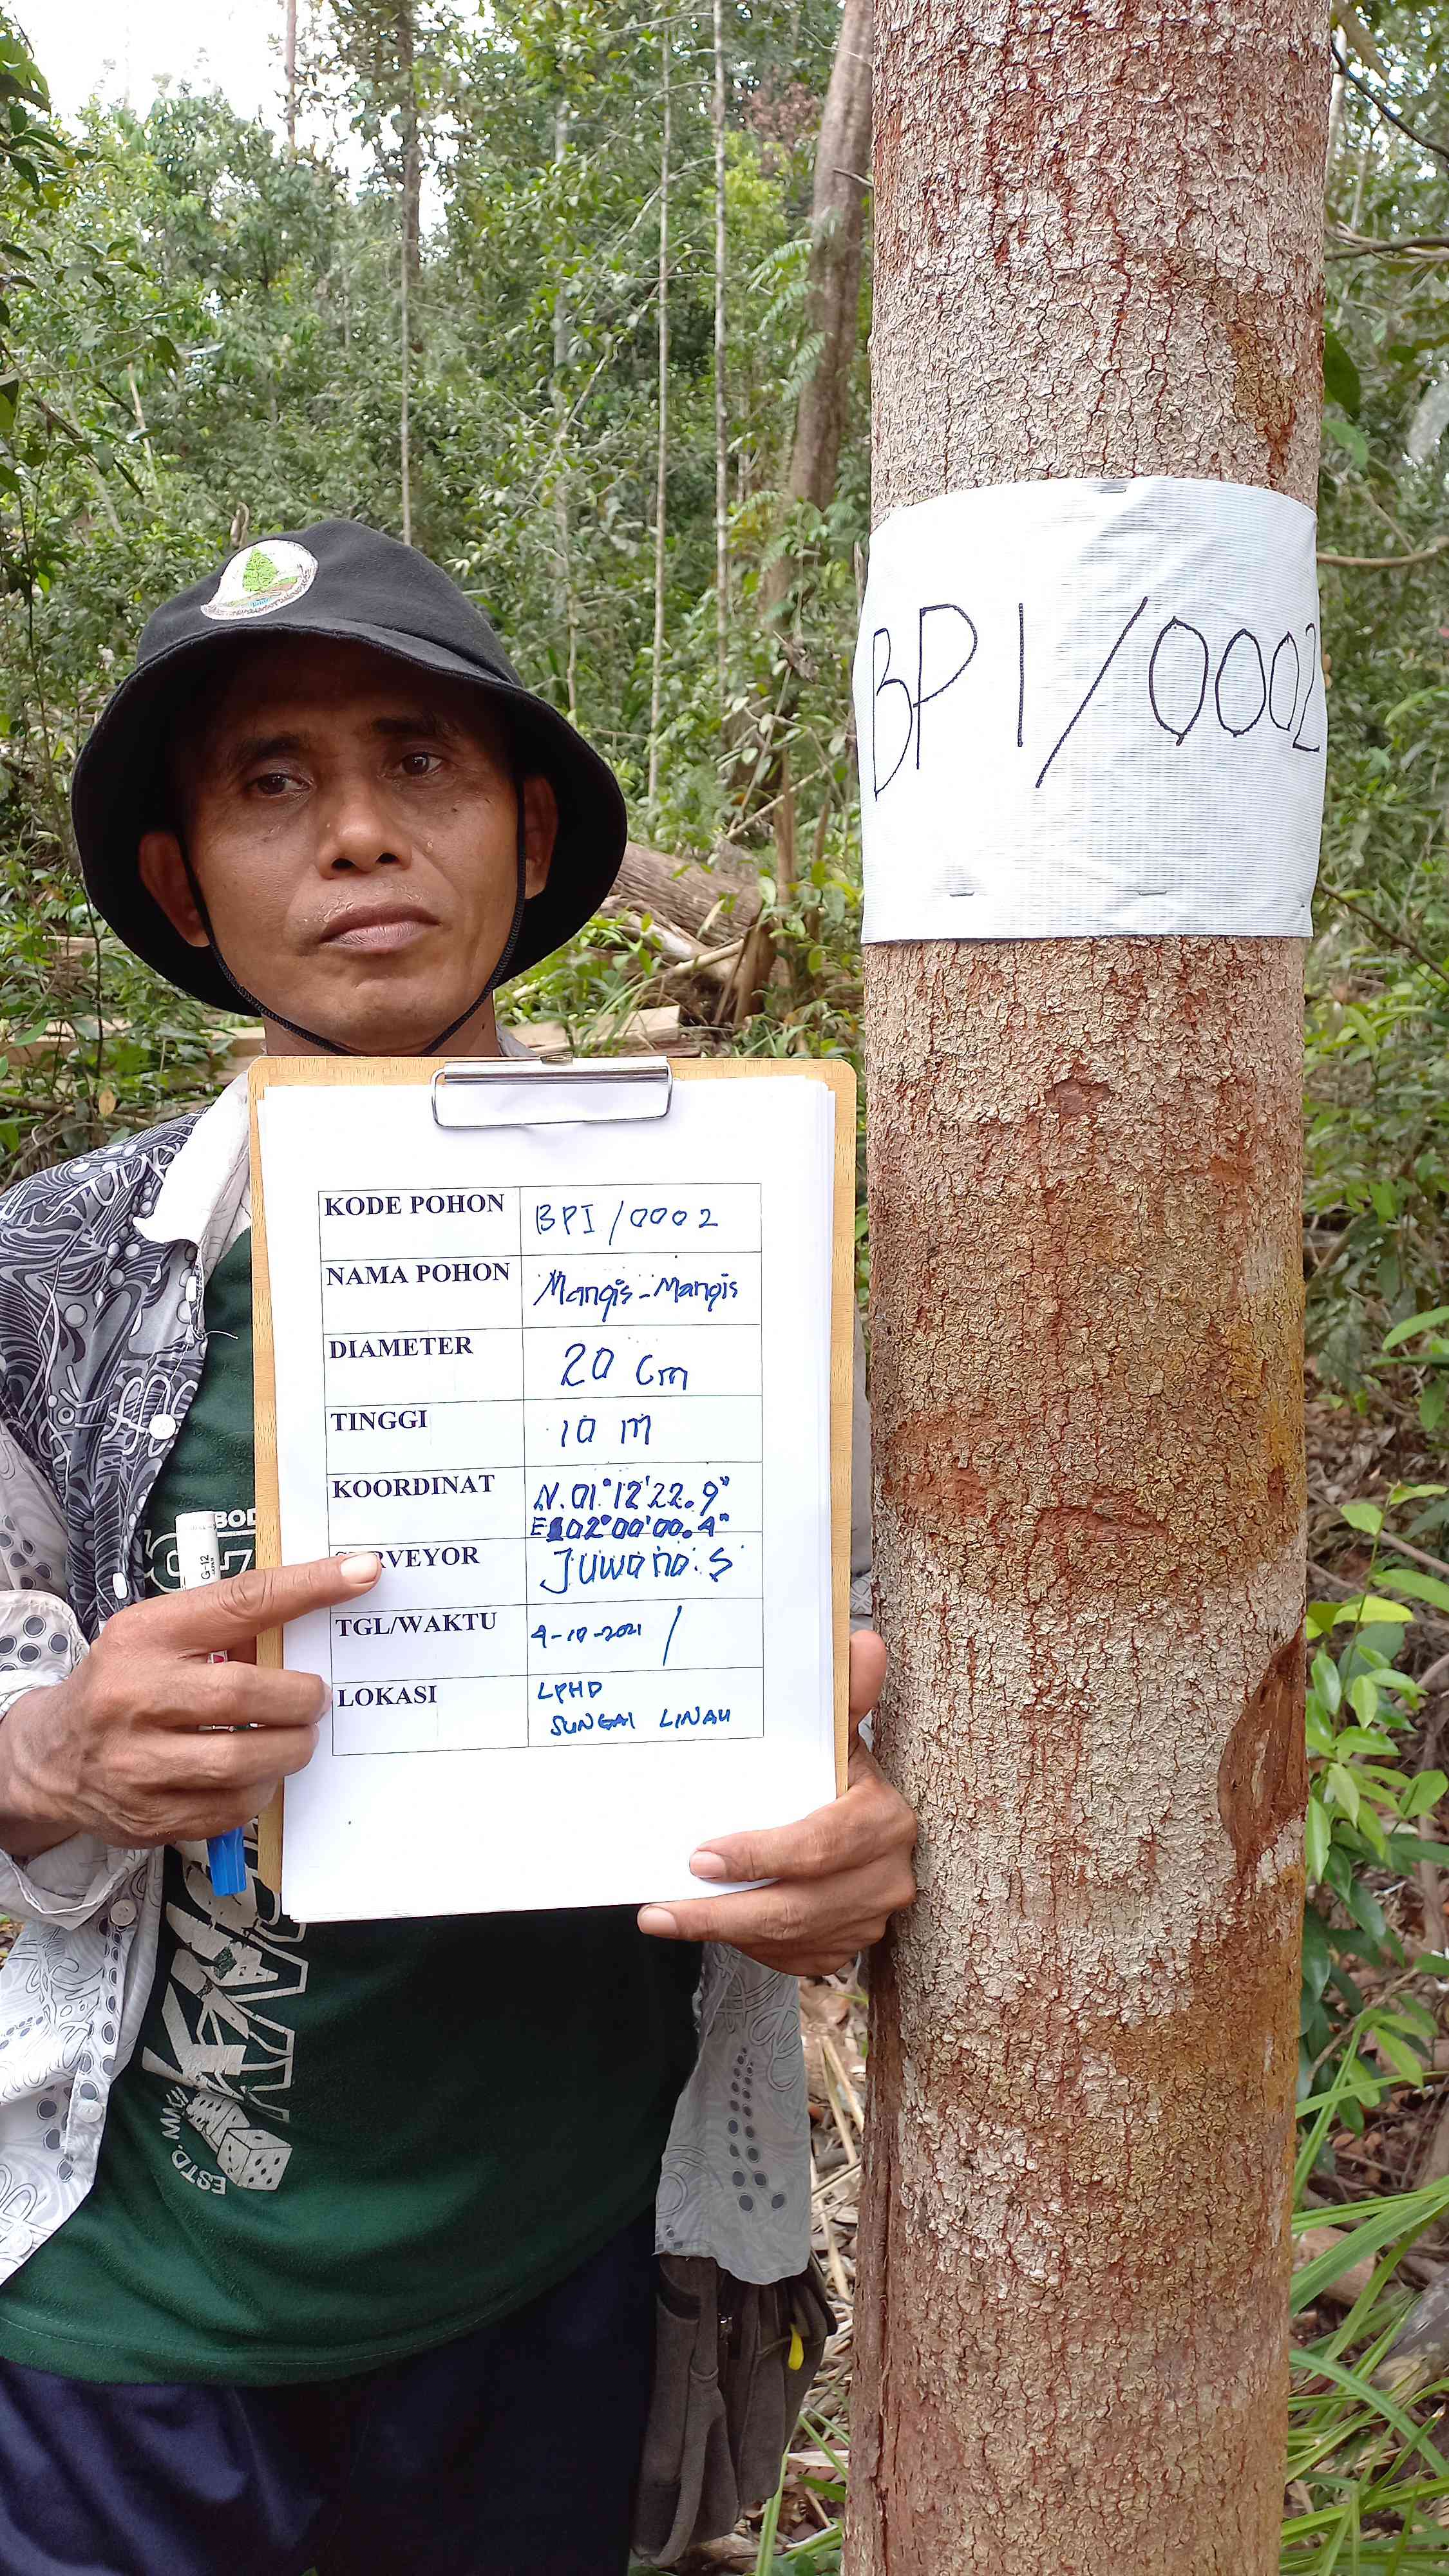 BPI/0002
KODE POHON BPI/0002
NAMA POHON Mangis-Mangis
DIAMETER 20 cm
TINGGI 10 m
KOORDINAT N.01°12'22.9"
E102°00'00.4"
SURVEYOR Juwono.S
TGL/WAKTU 4-10-2021 /
LOKASI LPHD
SUNGAI LINAU
G-12
ESTD.